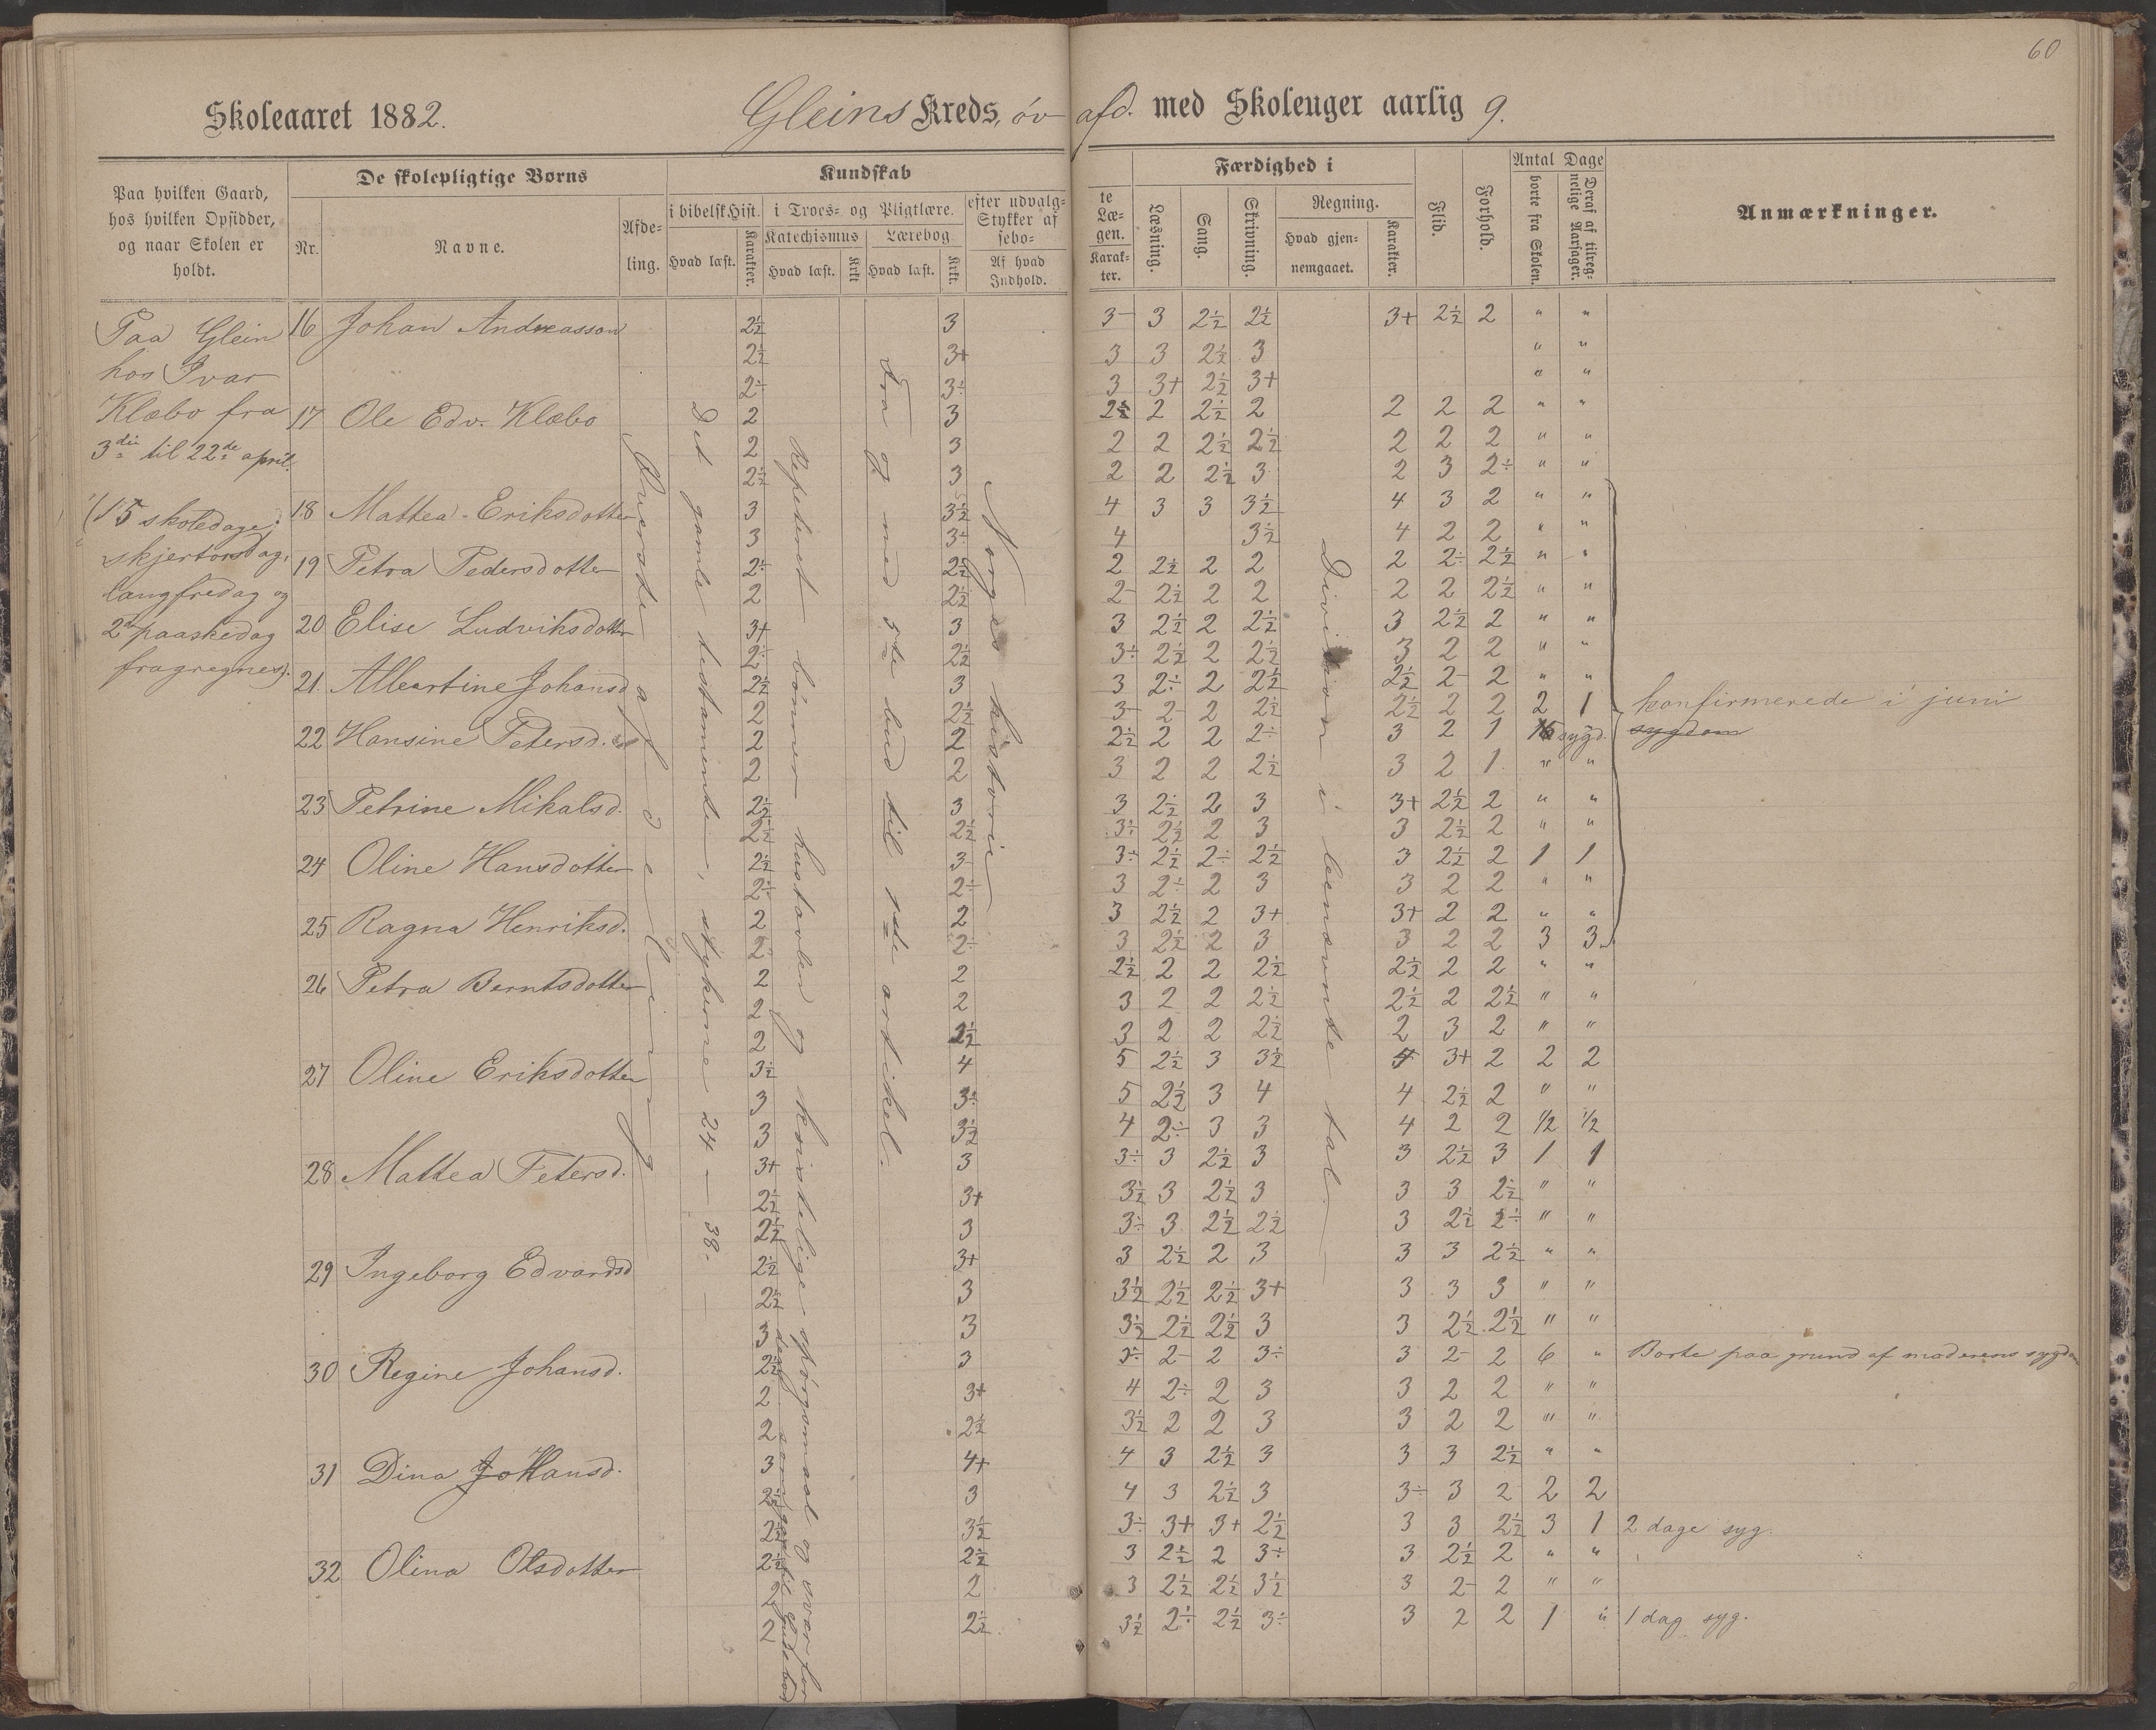 60
Skoleaaret 1882. Gleins Kreds, öv afd. med Skoleuger aarlig 9.
Paa hvilken Gaard, hos hvilken Opsidder, og naar Skolen er holdt.
De skolepligtige Børns
Nr. Navne. Afde-ling.
Kundskab
i bibelsk Hist. Hvad læst. Karakter.
i Troes- og Pligtlære.
Katechismus Hvad læst. Krkt.
Lærebog. Hvad læst. Krkt.
efter udvalg-te Stykker af Læ-sebo-gen.
Af hvad Indhold. Karak-ter.
Færdighed i
Læsning. Sang. Skrivning.
Regning. Hvad gjen-nemgaaet. Karakter.
Flid. Forhold.
Antal Dage
borte fra Skolen. Deraf af tilreg-nelige Aarsager.
Anmærkninger.
Paa Glein
hos Ivar
Klæbo fra
3die til 22de april.
(15 skoledage;
skjertorsdag,
langfredag og
2den paaskedag
fragregnes).
Øverste afdeling
Det gamle testamente, stykkerne 24 — 38.
Repeteret bönnen hustavlen og kristelige spörgsmaal og svar for
Fra og med 5te bud til 1ste artikel.
Norges historie
Division i benævnte tal.
16 Johan Andreasson 2½ 3 3- 3 2½ 2½ 3+ 2½ 2 " "
2½ 3+ 3 3 2½ 3 " "
2÷ 3÷ 3 3+ 2½ 3+ " "
17 Ole Edv. Klæbo 2 3 2½ 2 2½ 2 2 2 2 " "
2 3 2 2 2½ 2½ 2 2 2 " "
2½ 3 2 2 2½ 3 2 3 2÷ " "
18 Mattea Eriksdotter 3 3½ 4 3 3 3½ 4 3 2 " "
3 3÷ 4 3½ 4 2 2 " "
19 Petra Pedersdotter 2÷ 2½ 2 2½ 2 2 2 2÷ 2½ " "
2 2½ 2- 2½ 2 2 2 2 2½ " "
20 Elise Ludviksdotter 3+ 3 3 2½ 2 2½ 3 2½ 2 " "
2÷ 2½ 3÷ 2½ 2 2½ 3 2 2 " "
21. Albertine Johansd 2½ 3 3 2÷ 2 2½ 2½ 2- 2 " "
2 2½ 3- 2- 2 2½ 2½ 2 2 2 1 konfirmerede i juni
22 Hansine Petersd. 2 2 2½ 2 2 2÷ 3 2 1 16 sygd. sygdom
2 2 3 2 2 2½ 3 2 1 " "
23 Petrine Mikalsd. 2½ 3 3 2½ 2 3 3+ 2½ 2 " "
2½ 2½ 3÷ 2½ 2 3 3 2½ 2 " "
24 Oline Hansdotter 2½ 3- 3÷ 2½ 2÷ 2½ 3 2½ 2 1 1
2÷ 2÷ 3 2÷ 2 3 3 2 2 " "
25 Ragna Henriksd. 2 2 3 2½ 2 3+ 3+ 2 2 " "
2 2÷ 3 2½ 2 3 3 2 2 3 3
26 Petra Berntsdotter 2 2 2½ 2 2 2½ 2½ 2 2 " "
2 2 3 2 2 2½ 2½ 2 2½ " "
2 2½ 3 2 2 2½ 2 3 2 " "
27 Oline Eriksdotter 3½ 4 5 2½ 3 3½ 4 3+ 2 2 2
3 3÷ 5 2½ 3 4 4 2½ 2 " "
3 3½ 4 2÷ 3 3 4 2 2 1/2 1/2
28 Mattea Petersd. 3+ 3 3÷ 3 2½ 3 3 2½ 3 1 1
2½ 3+ 3½ 3 2½ 3 3 3 2½ " "
2½ 3 3÷ 3 2½ 2½ 3 2½ 2÷ " "
29 Ingeborg Edvardsd 2½ 3+ 3 2½ 2 3 3 3 2½ " "
2½ 3 3½ 2½ 2½ 3+ 3 3 3 " "
3 3 3½ 2½ 2½ 3 3 2½ 2½ " "
30 Regine Johansd. 2½ 3 3÷ 2- 2 3÷ 3 2- 2 6 " Borte paa grund af moderens sygdom
2 3+ 4 2÷ 2 3 3 2 2 " "
2 2½ 3½ 2 2 3 3 2 2 " "
31 Dina Johansd. 3 4+ 4 3 2½ 3 3 3 2½ " "
2½ 3 4 3 2½ 3 3÷ 3 2 2 2
2½ 3½ 3÷ 3+ 3+ 2½ 3 3 2½ 3 1 2 dage syg.
32 Olina Olsdotter 2½ 2½ 3 2½ 2 3÷ 3 2½ 2 " "
2 2 3 2½ 2½ 3½ 3 2- 2 " "
2 2½ 3½ 2÷ 2½ 3÷ 3 2 2 1 " 1 dag syg.